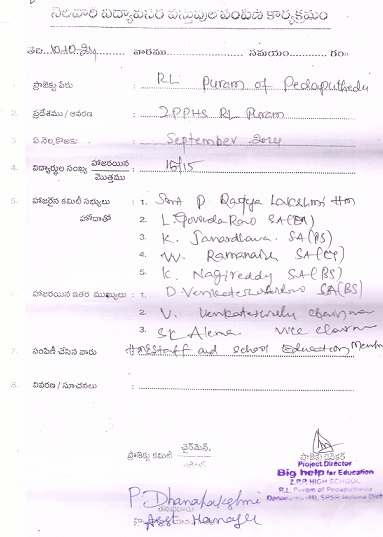 నెలవారి విద్యావసర వస్తువుల పంపిణి కార్యక్రమం
తేది. 10-10-24 వారము సమయం గం॥
ప్రాజెక్టు పేరు : RL Puram of Pedaputhedu
2. ప్రదేశము / ఆవరణ : ZPPHS RL Puram
3. ఏ నెల కొఱకు : September 2024
4. విద్యార్థుల సంఖ్య హాజరయిన / మొత్తము : 15/15
5. హాజరైన కమిటీ సభ్యులు : 1. Smt P Rajya Lakshmi Hm
హోదాతో 2. L. Govinda Rao SA(EN)
3. K. Janardhana. SA(PS)
4. W. Ramanaiah SA
5. K. Nagireddy SA(BS)
హాజరయిన ఇతర ముఖ్యులు : 1. D. Venkateswarlu SA(BS)
2. V. Venkateswarlu Chairman
3. SK Aleema. Vice Chairman
7. పంపిణీ చేసిన వారు : HM Staff and School Education Member
8. వివరణ / సూచనలు :
చైర్‌మెన్,
ప్రాజెక్టు కమిటి
Project Director
Big help for Education
Z.P.P. HIGH SCHOOL
R.L. Puram of Pedaputhedu
P. Dhanalakshmi
Asst Manager